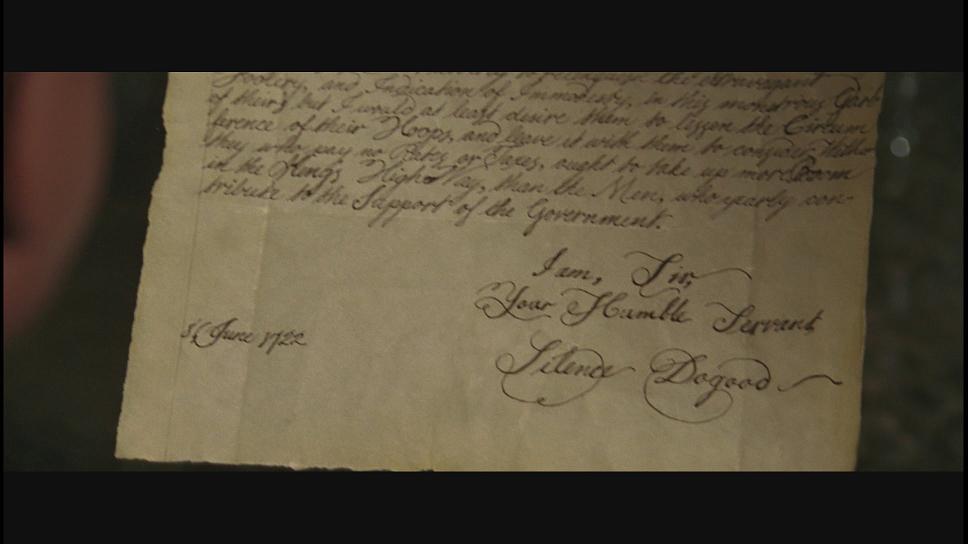 to relinquish the extravagant
Foolery, and Indication of Immodesty, in this monstrous Garb
of theirs but I would at least desire them to lissen the Circum
ference of their Hoops, and leave it with them to consider, Whether
they who pay no Rates or Taxes, ought to take up more Room
in the King's High Way, than the Men, who yearly con-
tribute to the Support of the Government.
I am, Sir,
Your Humble Servant
June 1722
Silence Dogood